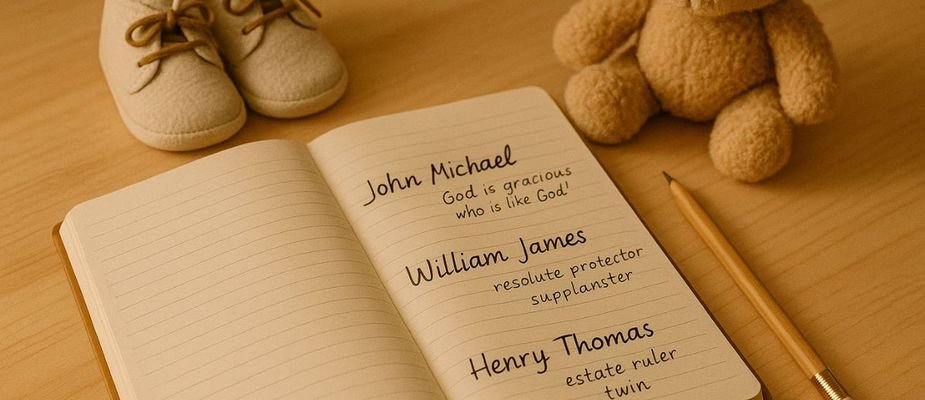 John Michael
God is gracious
who is like God'
William James
resolute protector
supplanster
Henry Thomas
estate ruler
twin